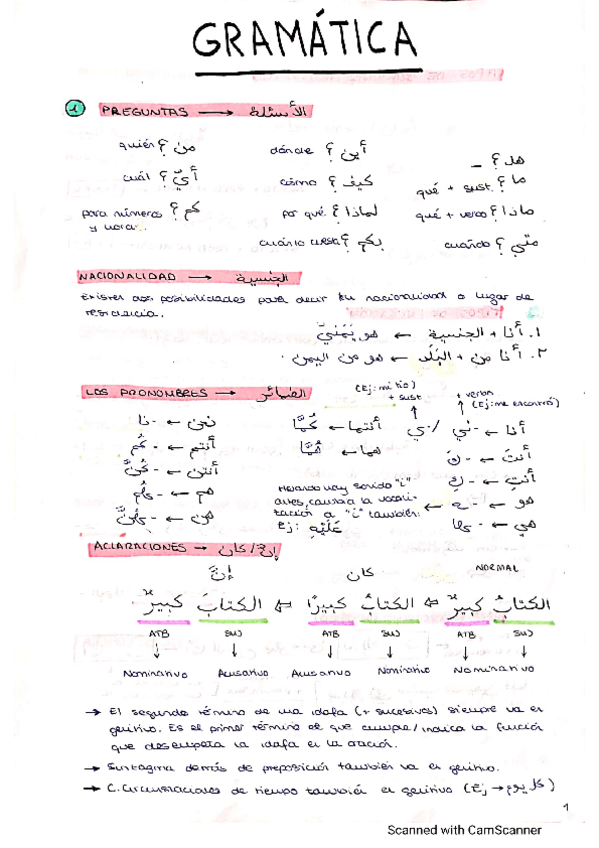 GRAMÁTICA
1 PREGUNTAS → الأسئلة
quién من ؟ dónde أين ؟ هل ؟ _
cuál أيّ ؟ cómo كيف ؟ qué + sust. ما ؟
para números y hora. كم ؟ por qué لماذا ؟ qué + verbo ماذا ؟
cuánto cuesta بكم ؟ cuándo متى ؟
NACIONALIDAD → الجنسية
Existen dos posibilidades para decir tu nacionalidad o lugar de
residencia.
١. أنا + الجنسية ← هو يَمَنيّ
٢. أنا من + البَلَد ← هو من اليمن.
LOS PRONOMBRES → الضمائر
(Ej: mi tío) + sust
+ verbo (Ej: me encontró)
أنا ← - ني / - ي أنتما ← كُمَا نحن ← - نا
أنتَ ← - كَ هما ← هُمَا أنتم ← - كُم
أنتِ ← - كِ أنتن ← - كُنَّ
هو ← - ه هم ← - هُم
هي ← - ها هن ← - هُنَّ
cuando hay sonido "i"
antes, cambia la vocali-
zación a "i" también.
Ej: عَلَيْهِ
ACLARACIONES → إنّ / كان
إنَّ كان NORMAL
الكتابُ كبيرٌ ⇐ الكتابُ كبيرًا ⇐ الكتابَ كبيرٌ
ATB SUJ ATB SUJ ATB SUJ
Nominativo Acusativo Acusativo Nominativo Nominativo
→ El segundo término de una idafa (+ sucesivos) siempre va en
genitivo. Es el primer término el que cumple/indica la función
que desempeña la idafa en la oración.
→ Sintagma detrás de preposición también va en genitivo.
→ C. Circunstanciales de tiempo también en genitivo (Ej → كل يوم)
1
Scanned with CamScanner